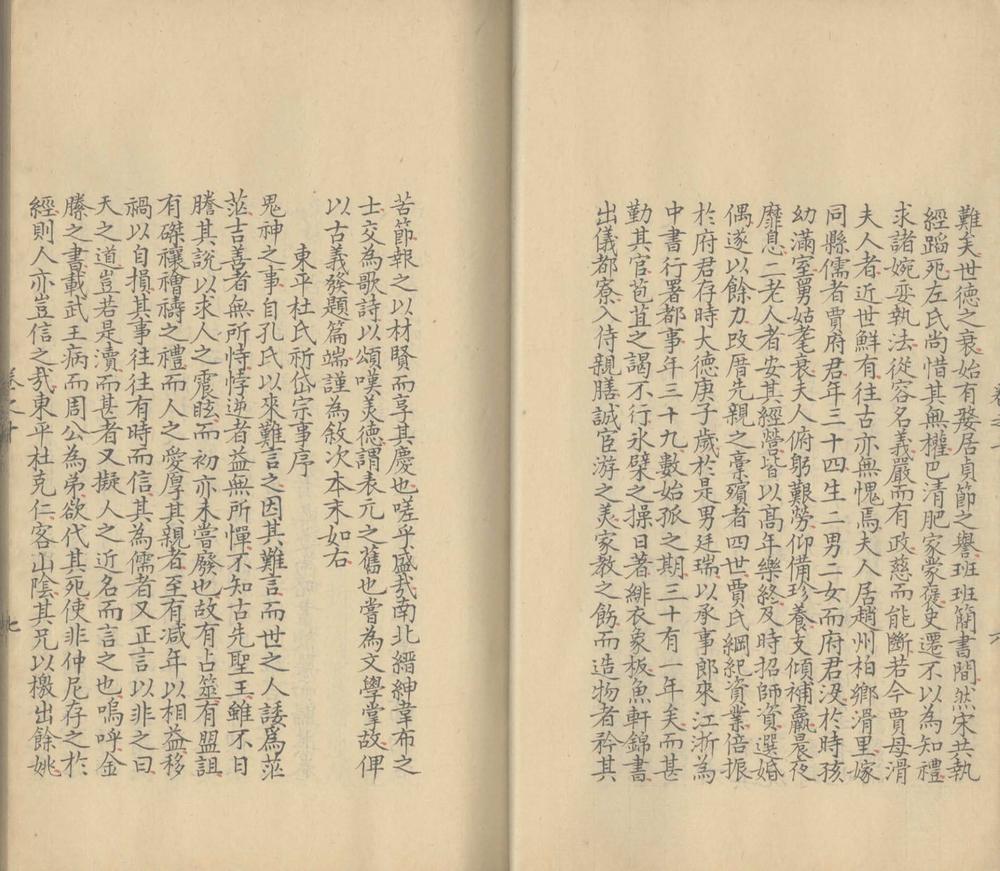 難矣世德之衰始有發居貞節之譽班班簡書間然宋共執
經蹈死左氏尚惜其無權巴清肥家蒙褒史遷不以為知禮
求諸婉娈執法從容名義嚴而有政慈而能斷若今賈母滑
夫人者近世鮮有往古亦無愧焉夫人居趙州柏鄉滑里嫁
同縣儒者賈府君年三十四生二男二女而府君沒於時孩
幼滿室舅姑耄衰夫人俯躬艱勞仰備珍養支傾補羸晨夜
靡息二老人者安其經營皆以高年樂終及時招師資選婚
偶遂以餘力改厝先親之藁殯者四世賈氏綱紀資業倍振
於府君存時大德庚子歲於是男廷瑞以承事郎來江浙為
中書行署都事年三十九數始孤之期三十有一年矣而甚
勤其官苞苴之謁不行氷檗之操日著緋衣象板魚軒錦書
出儀都寮入侍親膳誠宦游之美家教之飭而造物者矜其
苦節報之以材賢而享其慶也嗟乎盛哉南北縉紳韋布之
士交為歌詩以頌嘆美德謂表元之舊也嘗為文學掌故俾
以古義發題篇端謹為敘次本末如右
東平杜氏祈岱宗事序
鬼神之事自孔氏以來難言之因其難言而世之人諉為茫
茫吉善者無所恃悖逆者益無所憚不知古先聖王雖不日
謄其說以求人之震眩而初亦未嘗廢也故有占筮有盟詛
有磔禳禬禱之禮而人之愛厚其親者至有減年以相益移
禍以自損其事往往有時而信其為儒者又正言以非之曰
天之道豈若是瀆而甚者又擬人之近名而言之也嗚呼金
縢之書載武王病而周公為弟欲代其死使非仲尼存之於
經則人亦豈信之哉東平杜克仁客山陰其兄以檄出餘姚